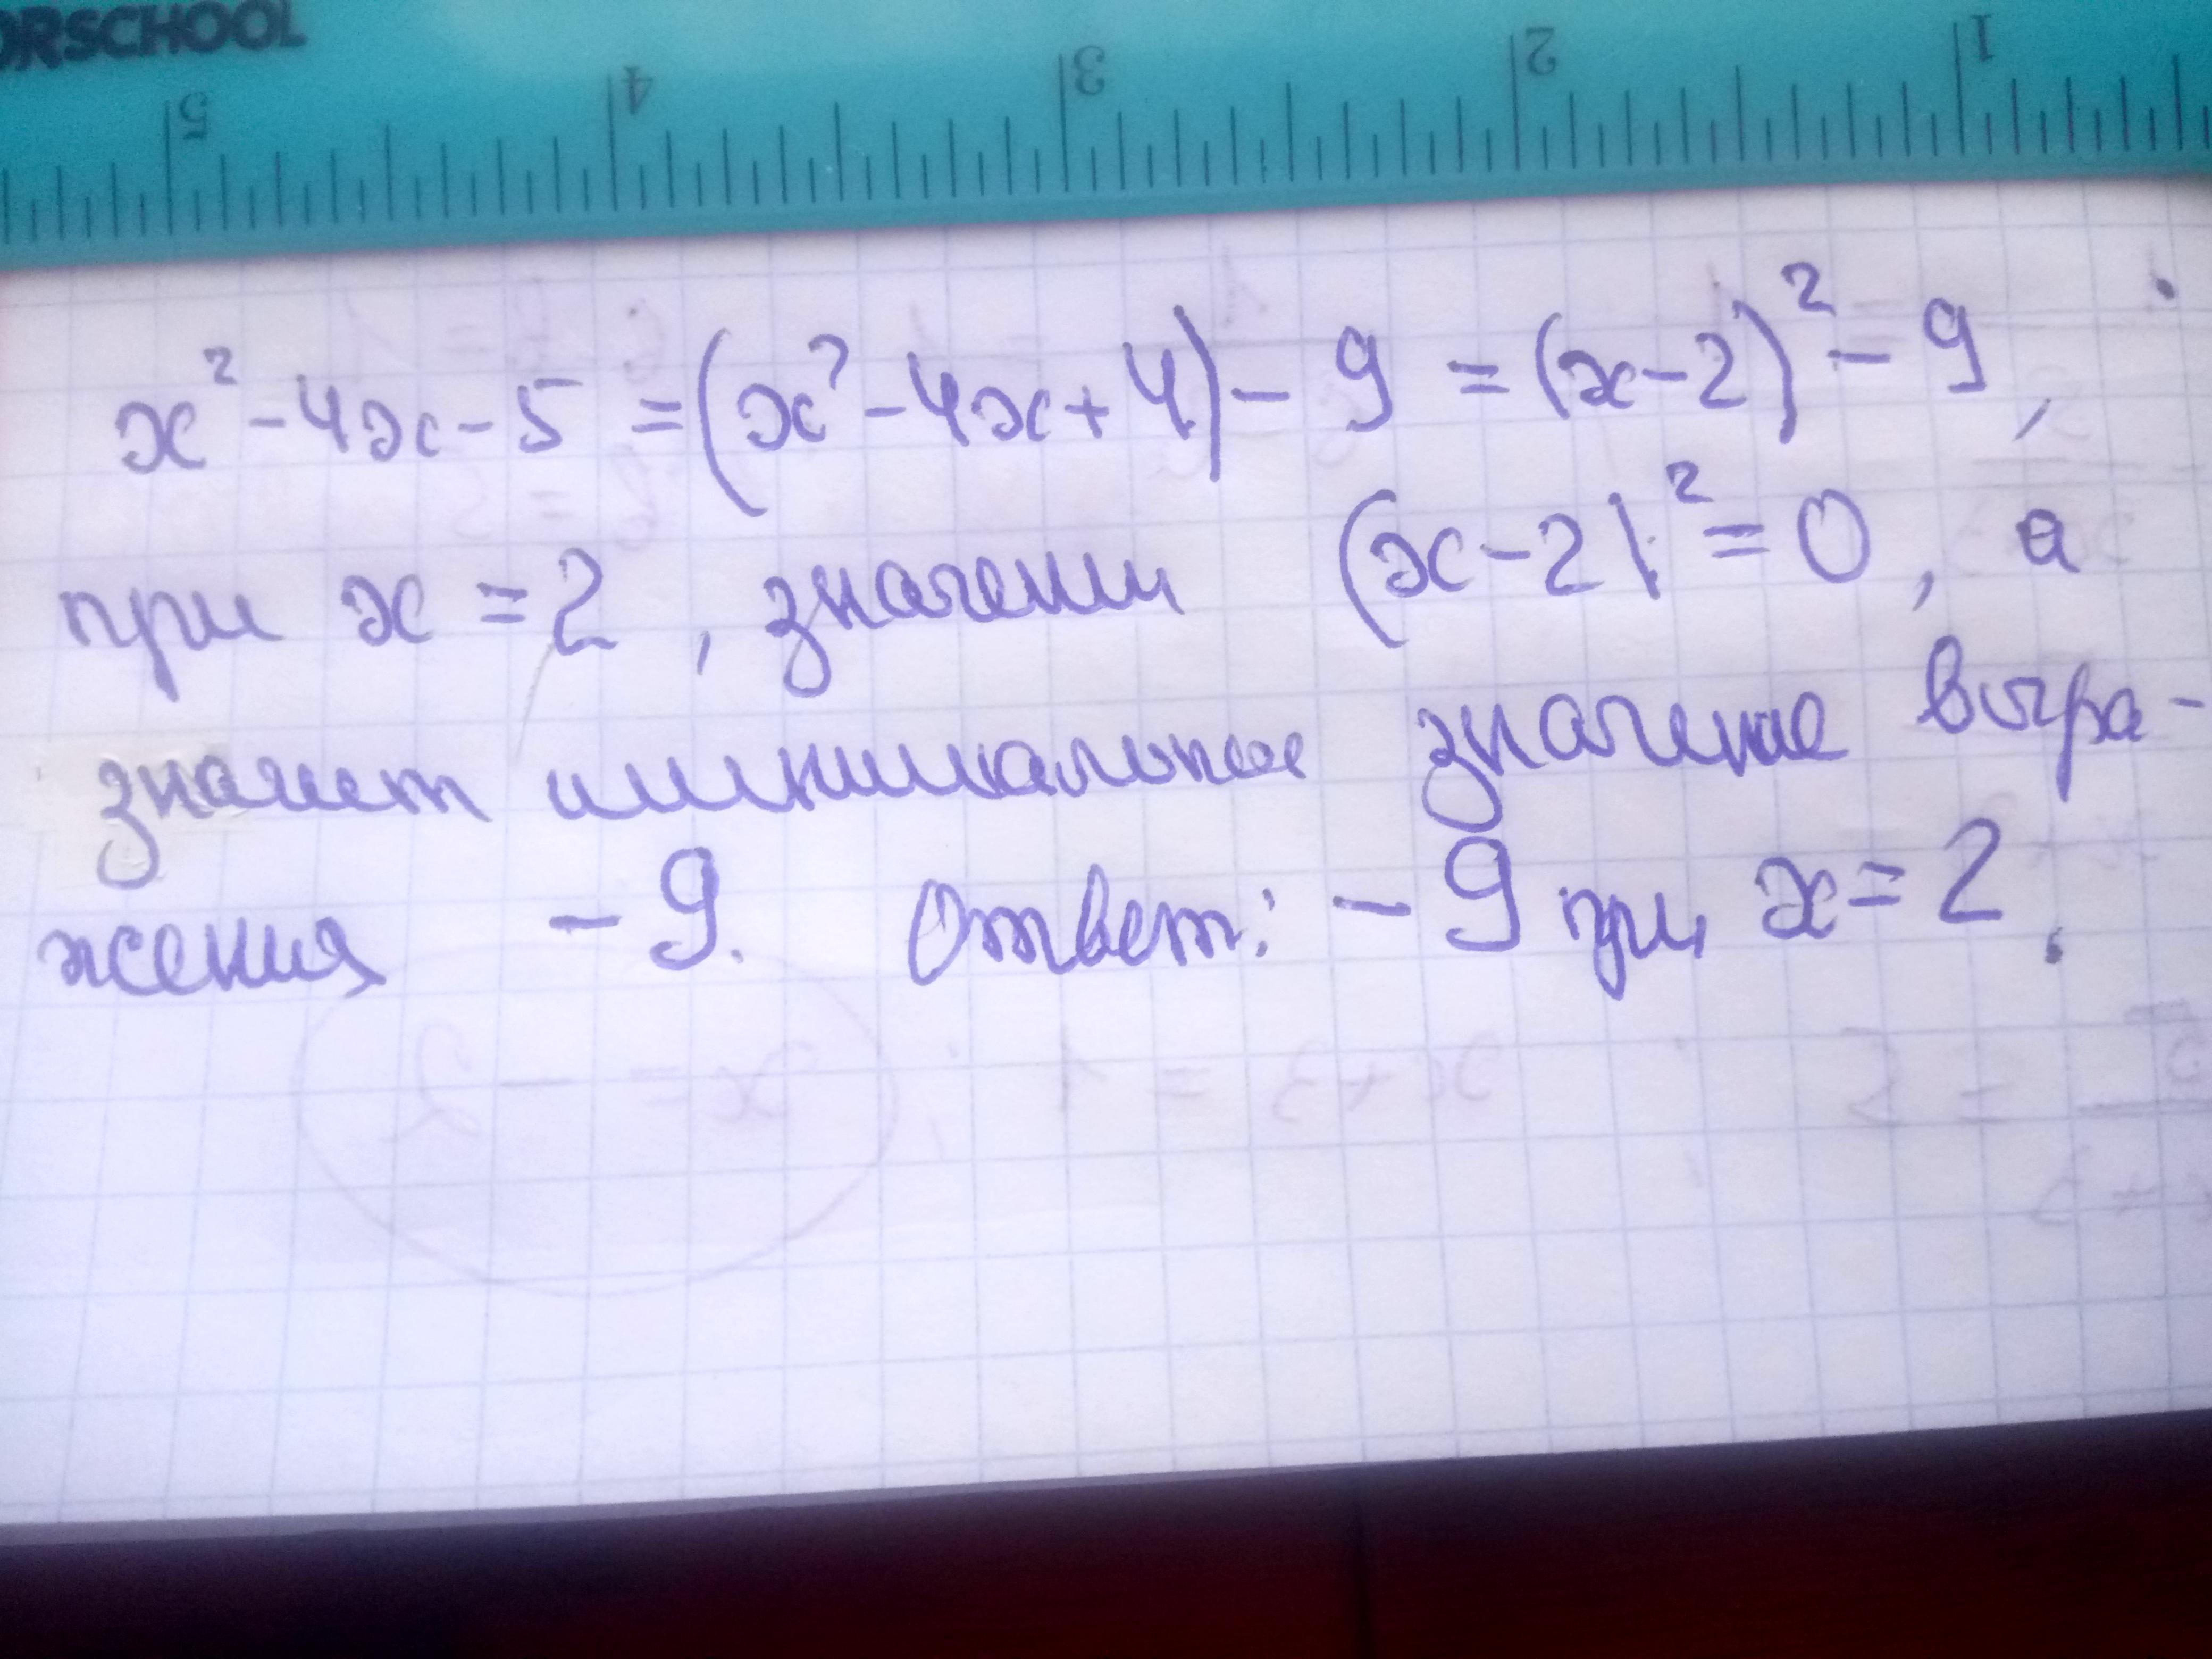 ORSCHOOL
5 4 3 2 1
x² - 4x - 5 = (x² - 4x + 4) - 9 = (x - 2)² - 9,
при x = 2, значении (x - 2)² = 0, а
значит минимальное значение выра-
жения - 9. Ответ: - 9 при x = 2.